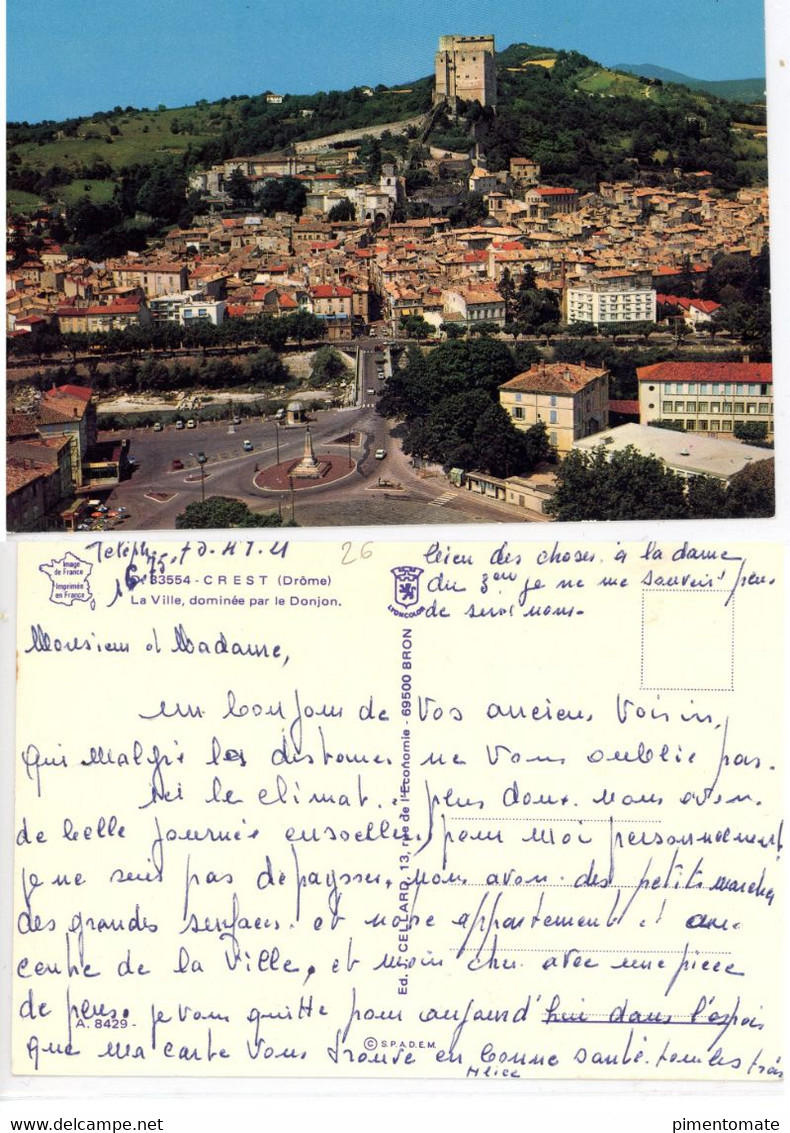 Image
de France
Imprimée
en France
26
83554 - CREST (Drôme)
La Ville, dominée par le Donjon.
LYONCOLOR
bien des choses à la dame
du 3em je ne me souvien plus
de son nom.
Monsieur et Madame,
un bonjour de Vos anciens Voisins,
qui malgré les distances ne Vous oublie pas.
ici le climat plus doux. nous avons
de belle journée ensoleillée, pour moi personnellement
je ne suis pas dépaysser, nous avons des petits marchés
des grandes surfaces et notre appartement et au
centre de la Ville, et moin cher avec une pièce
de plus. je vous quitte pour aujourd'hui dans l'espoir
que ma carte Vous trouve en bonne santé. tous les trois
Alice
A. 8429 -
© S.P.A.D.E.M.
Ed. CELLARD, 13, rue de l'Economie - 69500 BRON
pimentomate